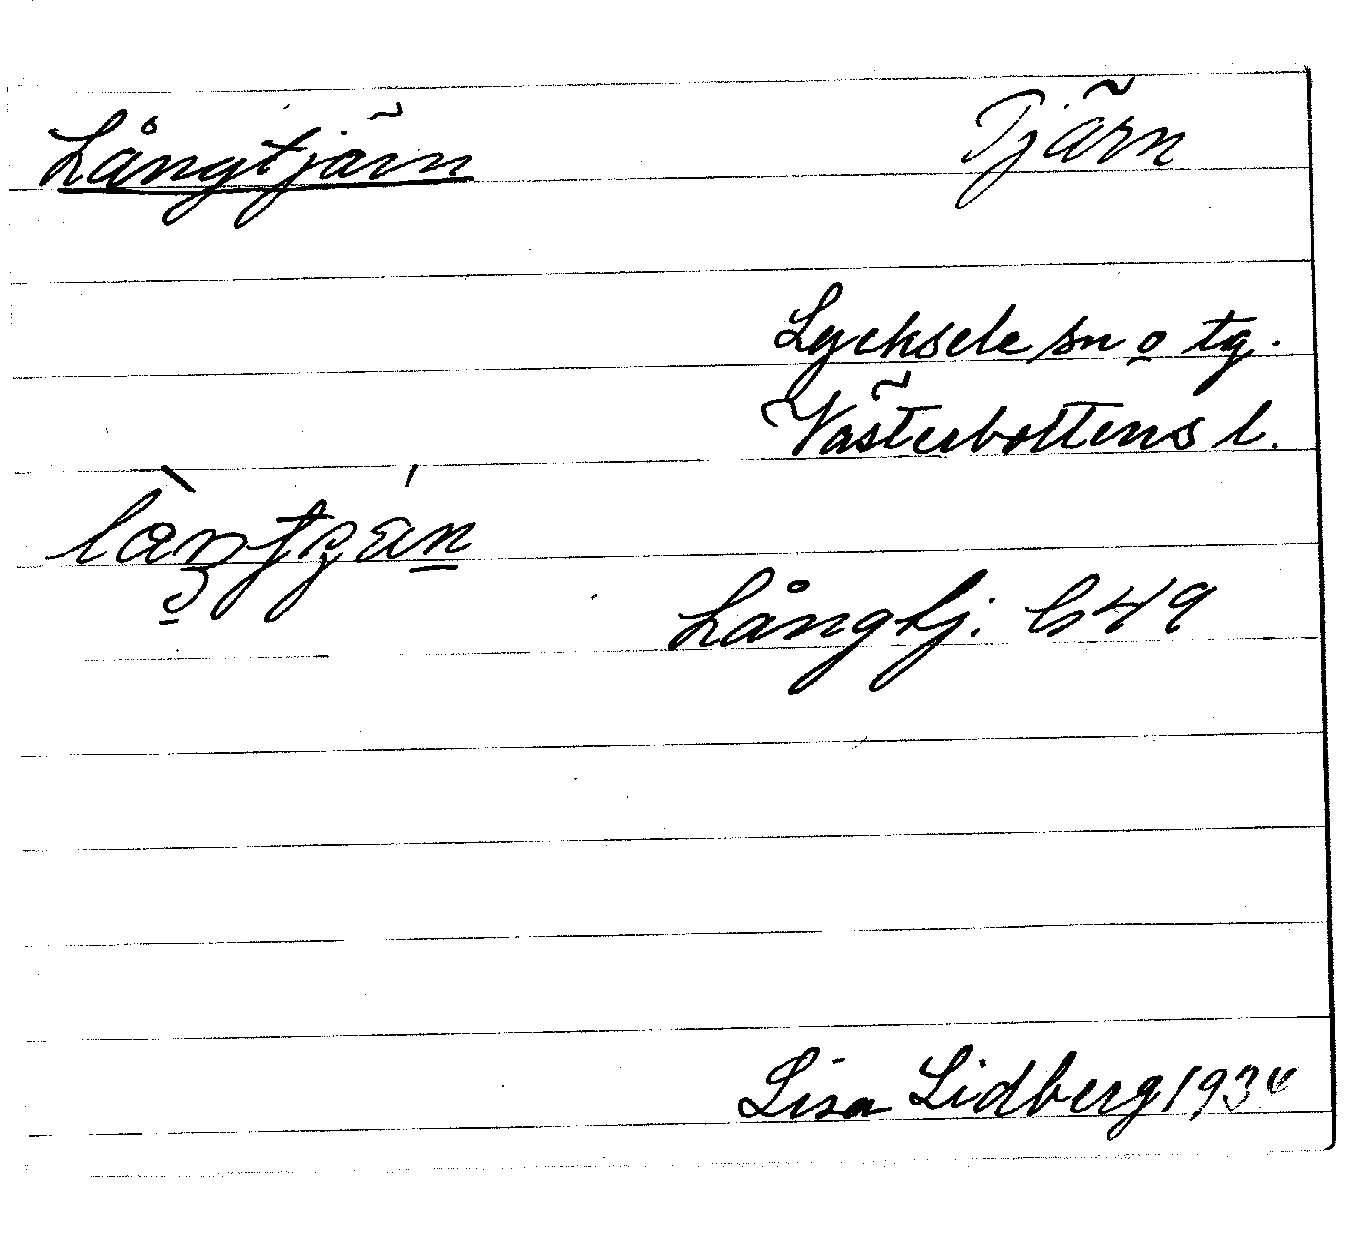 Långtjärn Tjärn
Lycksele sn o tg.
Västerbottens l.
Långtj. G49
Lisa Lidberg 1934